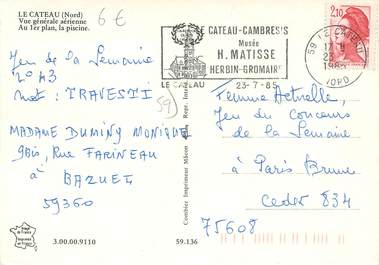 LE CATEAU (Nord)
Vue générale aérienne
Au 1er plan, la piscine.
6€
LE CATEAU-CAMBRÉSIS
Musée
H. MATISSE
HERBIN-GROMAIRE
LE CATEAU
23-7-85
59 LE CATEAU
23
NORD
2,10
Jeu de la Semaine
n° 43
mot : TRAVESTI
MADAME DUMINY MONIQUE
9bis, Rue FARINEAU
à BAZUEL
59360
59
Combier Imprimeur Mâcon
Femme Actuelle,
Jeu du Concours
de la Semaine
à Paris Brune
Cedex 834
75608
3.00.00.9110
59.136